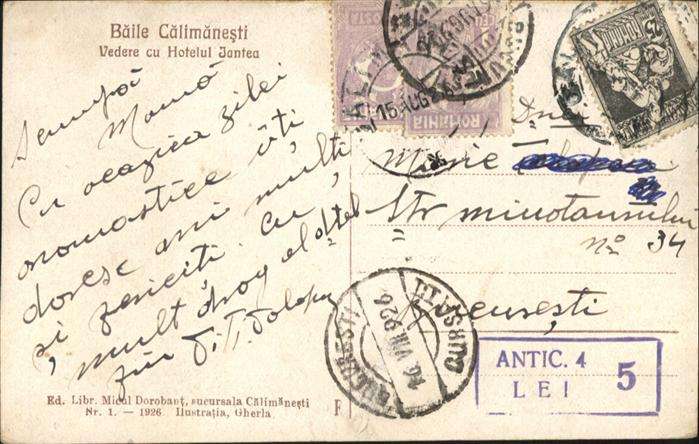 Băile Călimănești
Vedere cu Hotelul Jantea
Scumpă
Mamă
Cu ocazia zilei
onomastice îți
doresc ani mulți
și fericiți. Cu
mult drag al dtale
Dnei
Marie
Str minotaurului
no 34
București
ROMÂNIA
15 AUG
BUCUREȘTI
16 VIII 926
CURSA III
ANTIC. 4
LEI 5
Ed. Libr. Micul Dorobanț, sucursala Călimănești
Nr. 1. — 1926 Ilustrația, Gherla
F